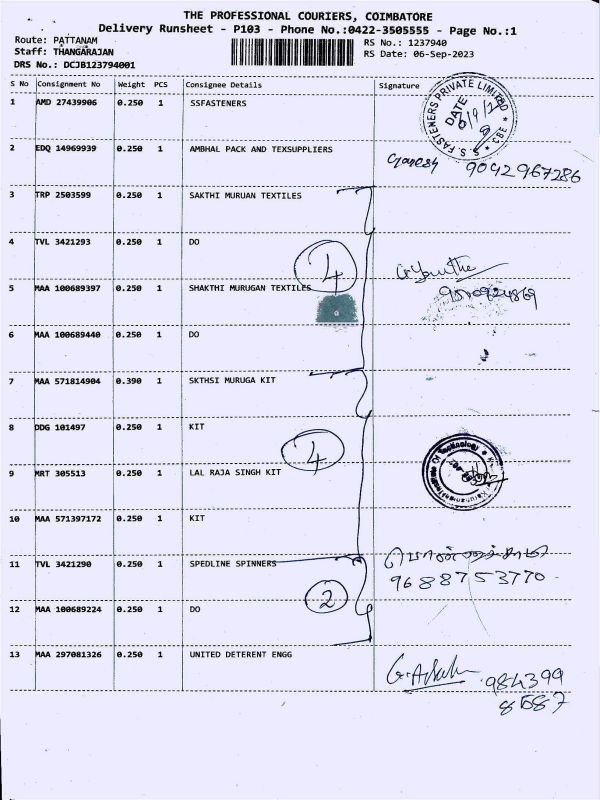 THE PROFESSIONAL COURIERS, COIMBATORE
Delivery Runsheet - P103 - Phone No.:0422-3505555 - Page No.:1
Route: PATTANAM RS No.: 1237940
Staff: THANGARAJAN RS Date: 06-Sep-2023
DRS No.: DCJB123794001
S No Consignment No Weight PCS Consignee Details Signature
1 AMD 27439906 0.250 1 SSFASTENERS
S.S. FASTENERS PRIVATE LIMITED * CBE *
DATE
6/9/23
2 EDQ 14969939 0.250 1 AMBHAL PACK AND TEXSUPPLIERS
Ganesh 9042967286
3 TRP 2503599 0.250 1 SAKTHI MURUAN TEXTILES
4 TVL 3421293 0.250 1 DO
4
5 MAA 100689397 0.250 1 SHAKTHI MURUGAN TEXTILES
6 MAA 100689440 0.250 1 DO
7 MAA 571814904 0.390 1 SKTHSI MURUGA KIT
8 DDG 101497 0.250 1 KIT
4
9 MRT 305513 0.250 1 LAL RAJA SINGH KIT
Institute Of Technology
10 MAA 571397172 0.250 1 KIT
11 TVL 3421290 0.250 1 SPEDLINE SPINNERS
9688753770
2
12 MAA 100689224 0.250 1 DO
13 MAA 297081326 0.250 1 UNITED DETERENT ENGG
984399
8587